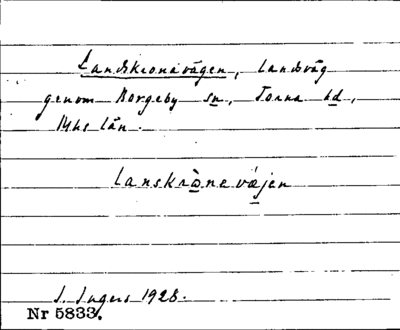 Landskronavägen, landsväg
genom Borgeby sn, Torna hd,
Mhs län.
lanskrònevæjen
I. Ingers 1928.
Nr 5833.